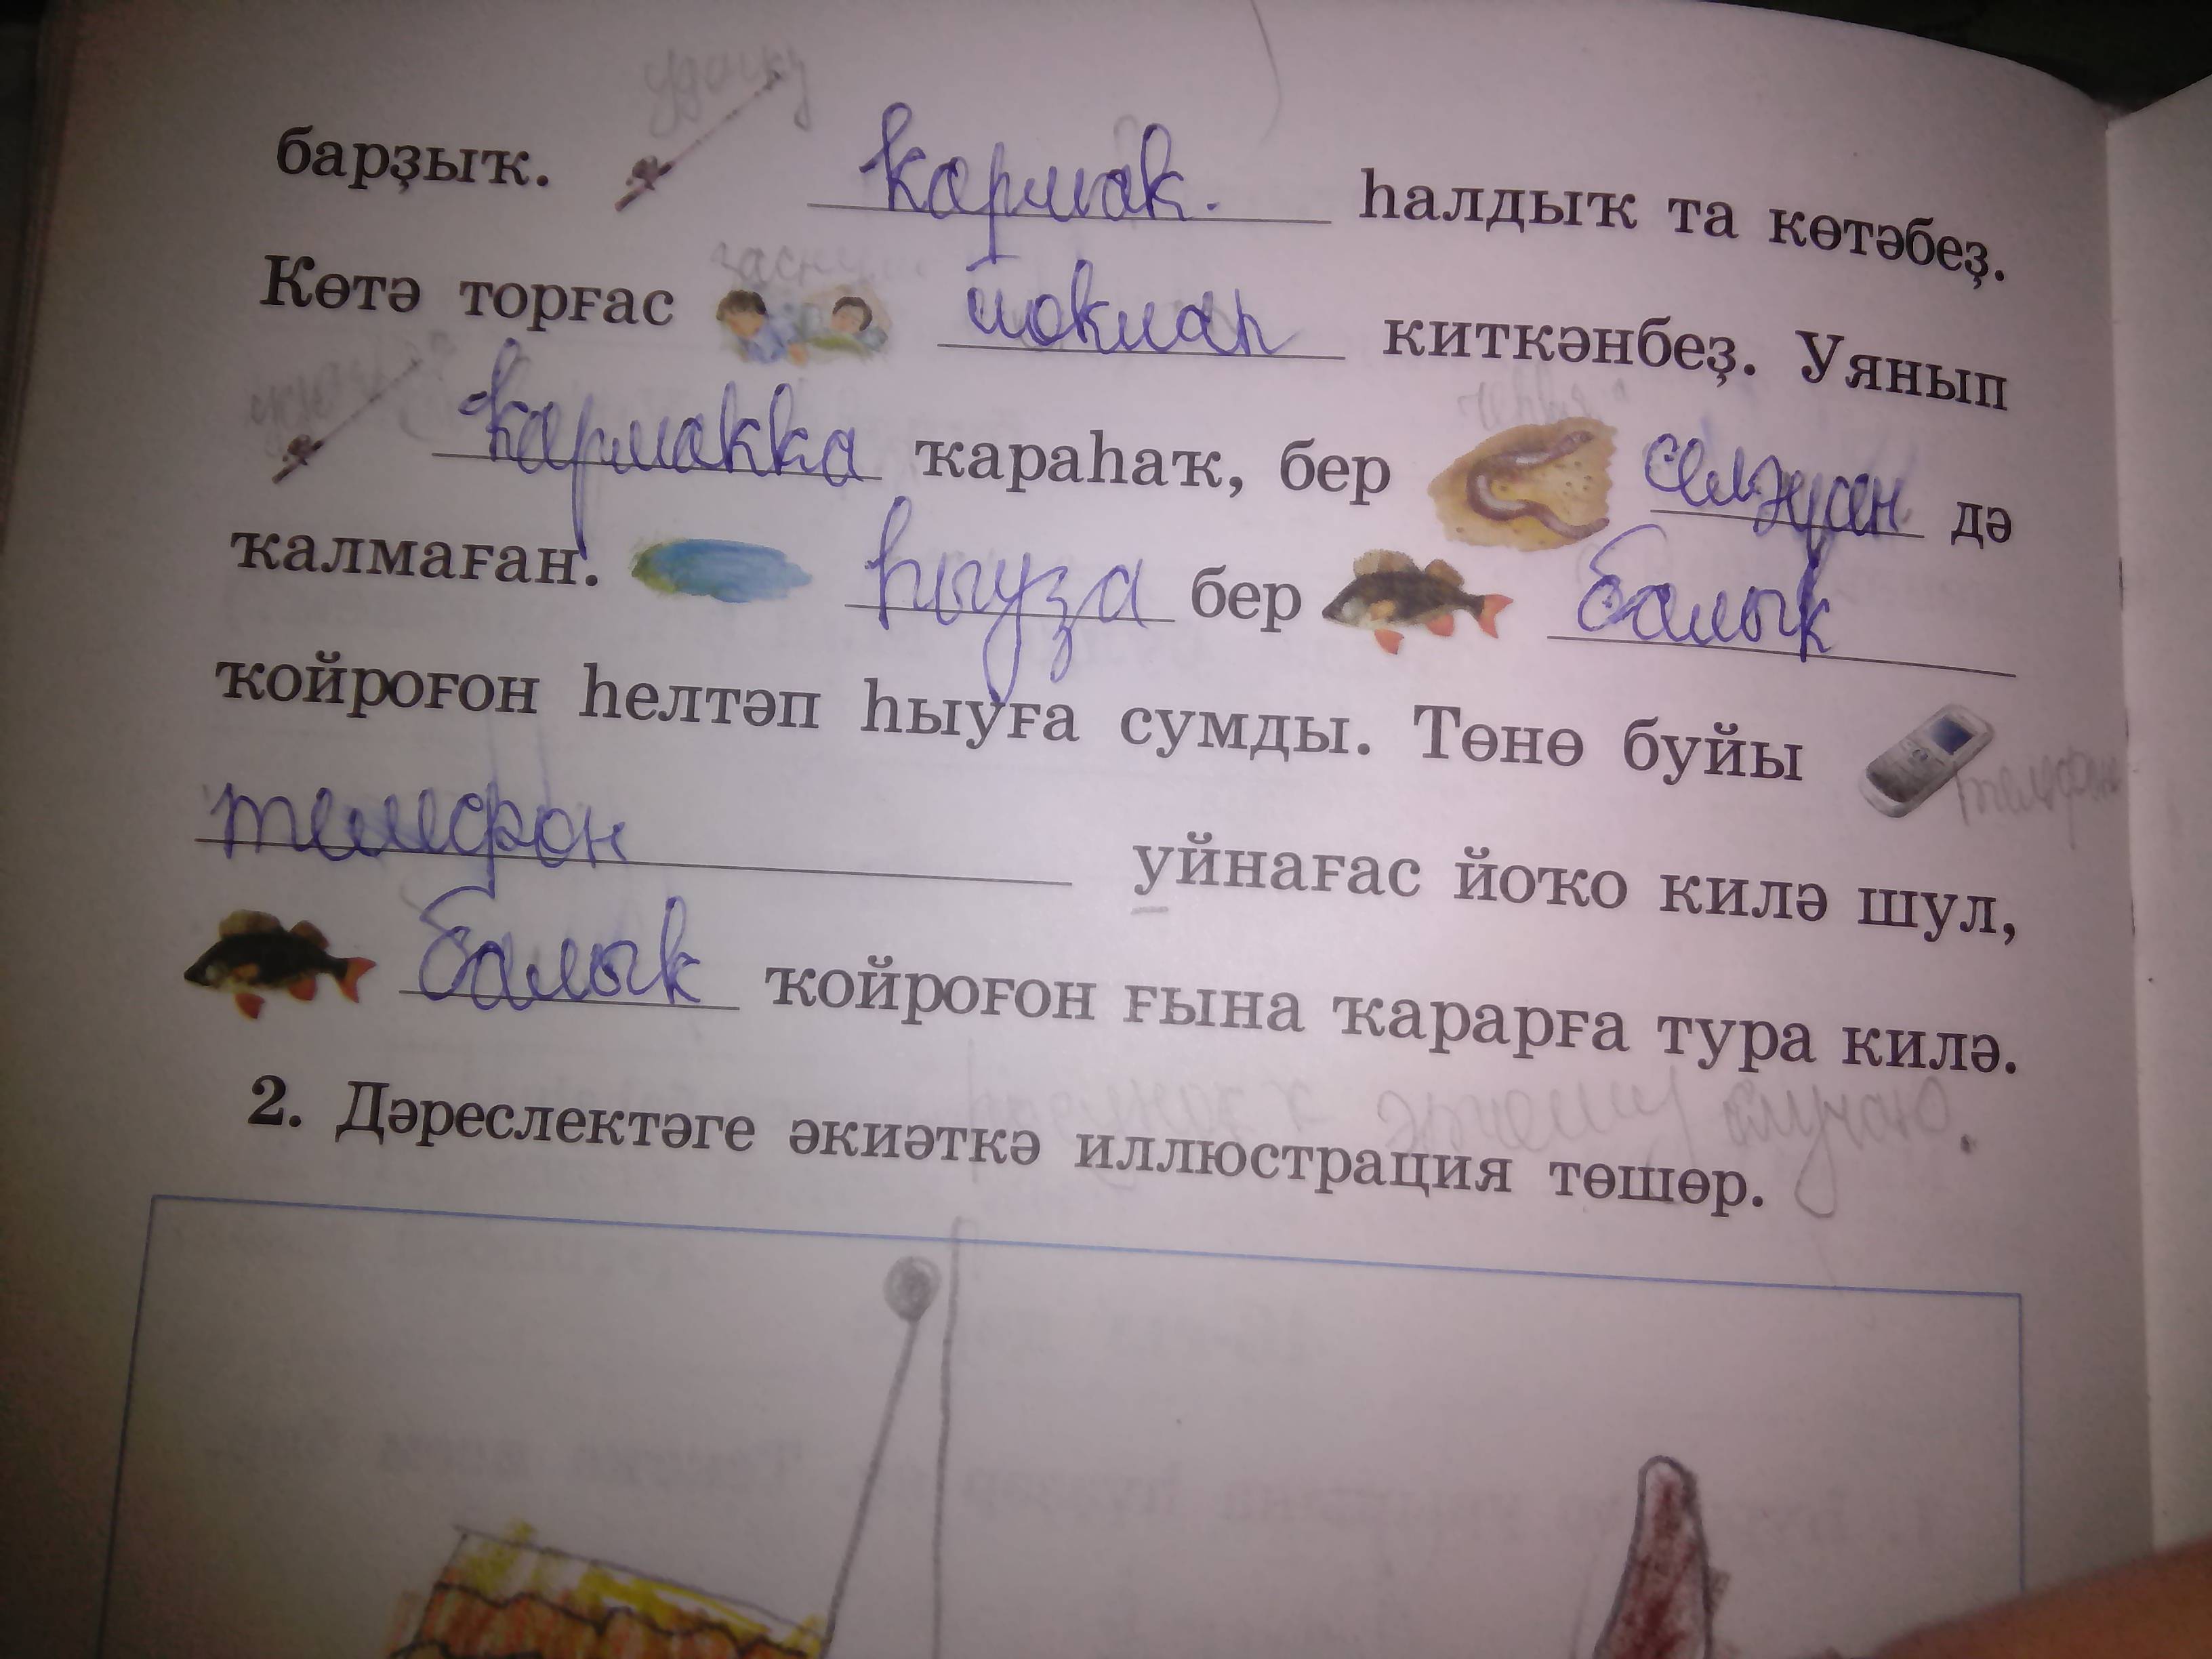 удочку
барҙыҡ. кармак. һалдыҡ та көтәбеҙ.
Көтә торғас йоклап киткәнбеҙ. Уянып
кармакка ҡараһаҡ, бер дә
ҡалмаған. һыуҙа бер балык
ҡойроғон һелтәп һыуға сумды. Төнө буйы
телефон
телефон уйнағас йоҡо килә шул,
балык ҡойроғон ғына ҡарарға тура килә.
2. Дәреслектәге әкиәткә иллюстрация төшөр.